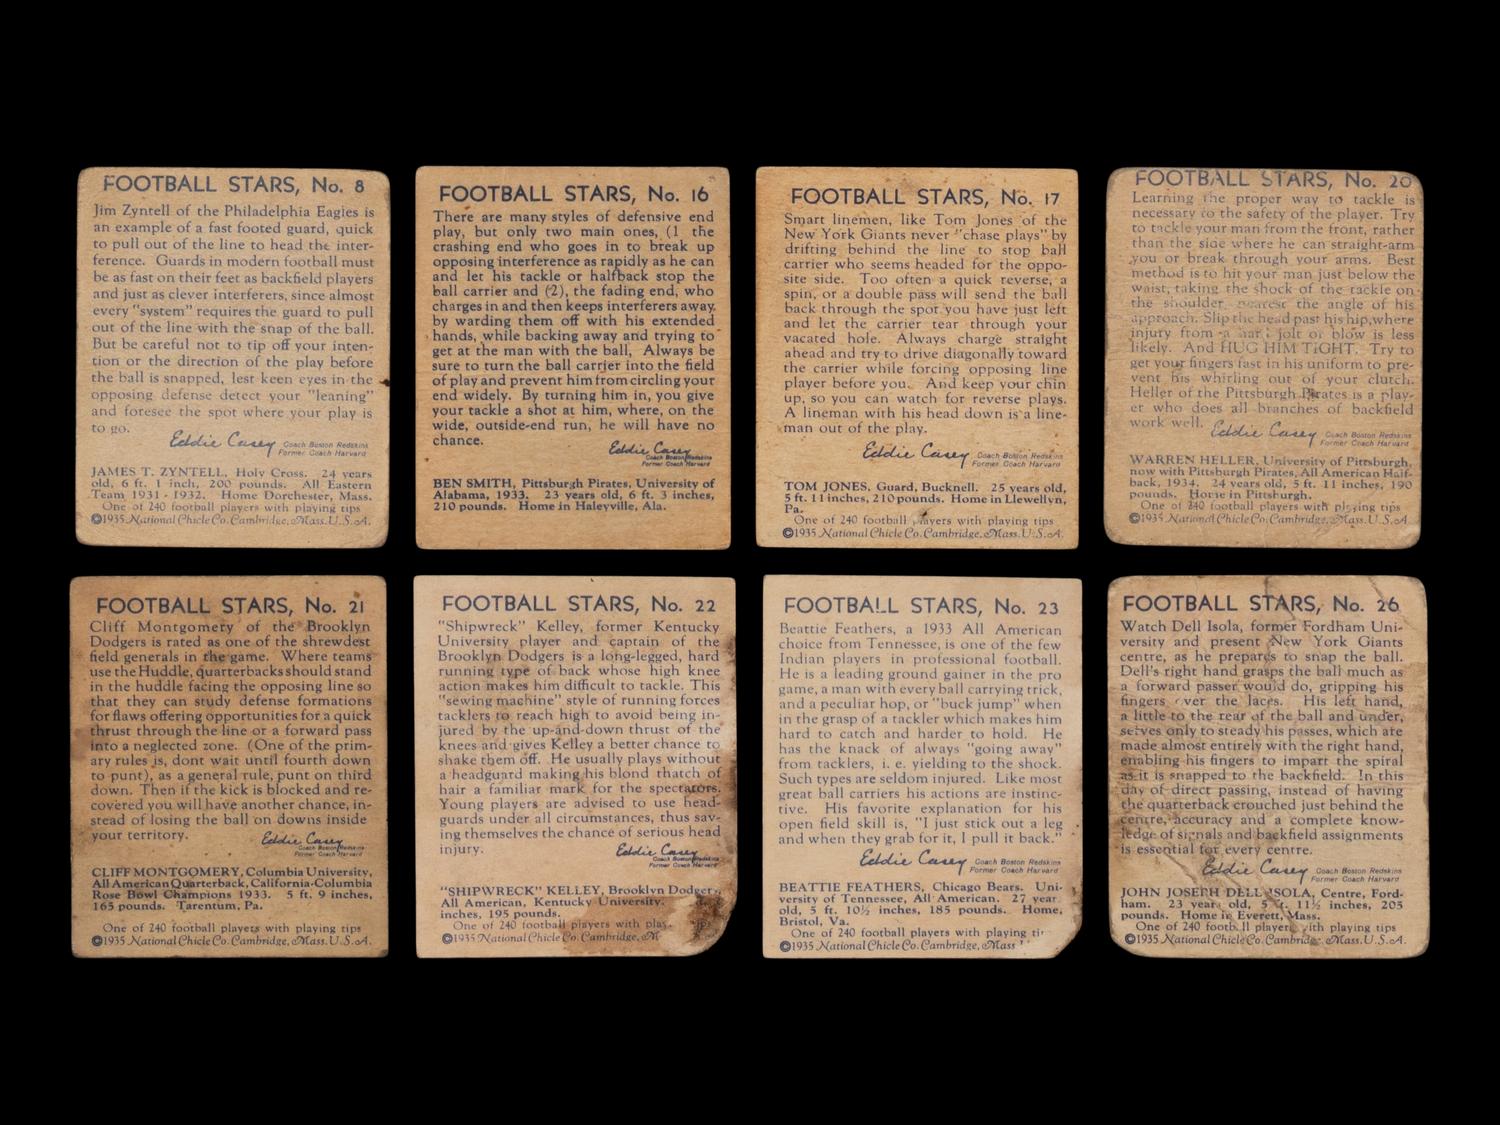 FOOTBALL STARS, No. 8
Jim Zyntell of the Philadelphia Eagles is
an example of a fast footed guard, quick
to pull out of the line to head the inter-
ference. Guards in modern football must
be as fast on their feet as backfield players
and just as clever interferers, since almost
every "system" requires the guard to pull
out of the line with the snap of the ball.
But be careful not to tip off your inten-
tion or the direction of the play before
the ball is snapped, lest keen eyes in the
opposing defense detect your "leaning"
and foresee the spot where your play is
to go.
Eddie Casey Coach Boston Redskins
Former Coach Harvard
JAMES T. ZYNTELL, Holy Cross. 24 years
old, 6 ft. 1 inch, 200 pounds. All Eastern
Team 1931 - 1932. Home Dorchester, Mass.
One of 240 football players with playing tips
©1935 National Chicle Co. Cambridge, Mass. U.S.A.
FOOTBALL STARS, No. 16
There are many styles of defensive end
play, but only two main ones, (1 the
crashing end who goes in to break up
opposing interference as rapidly as he can
and let his tackle or halfback stop the
ball carrier and (2), the fading end, who
charges in and then keeps interferers away,
by warding them off with his extended
hands, while backing away and trying to
get at the man with the ball, Always be
sure to turn the ball carrier into the field
of play and prevent him from circling your
end widely. By turning him in, you give
your tackle a shot at him, where, on the
wide, outside-end run, he will have no
chance.
Eddie Casey
Coach Boston Redskins
Former Coach Harvard
BEN SMITH, Pittsburgh Pirates, University of
Alabama, 1933. 23 years old, 6 ft. 3 inches,
210 pounds. Home in Haleyville, Ala.
FOOTBALL STARS, No. 17
Smart linemen, like Tom Jones of the
New York Giants never "chase plays" by
drifting behind the line to stop ball
carrier who seems headed for the oppo-
site side. Too often a quick reverse, a
spin, or a double pass will send the ball
back through the spot you have just left
and let the carrier tear through your
vacated hole. Always charge straight
ahead and try to drive diagonally toward
the carrier while forcing opposing line
player before you. And keep your chin
up, so you can watch for reverse plays.
A lineman with his head down is a line-
man out of the play.
Eddie Casey Coach Boston Redskins
Former Coach Harvard
TOM JONES, Guard, Bucknell. 25 years old,
5 ft. 11 inches, 210 pounds. Home in Llewellyn,
Pa.
One of 240 football players with playing tips
©1935 National Chicle Co. Cambridge, Mass. U.S.A.
FOOTBALL STARS, No. 20
Learning the proper way to tackle is
necessary to the safety of the player. Try
to tackle your man from the front, rather
than the side where he can straight-arm
you or break through your arms. Best
method is to hit your man just below the
waist, taking the shock of the tackle on
the shoulder nearest the angle of his
approach. Slip the head past his hip, where
injury from a hard jolt or blow is less
likely. And HUG HIM TIGHT. Try to
get your fingers fast in his uniform to pre-
vent his whirling out of your clutch.
Heller of the Pittsburgh Pirates is a play-
er who does all branches of backfield
work well.
Eddie Casey Coach Boston Redskins
Former Coach Harvard
WARREN HELLER, University of Pittsburgh,
now with Pittsburgh Pirates, All American Half-
back, 1934. 24 years old, 5 ft. 11 inches, 190
pounds. Home in Pittsburgh.
One of 240 football players with playing tips
©1935 National Chicle Co. Cambridge, Mass. U.S.A.
FOOTBALL STARS, No. 21
Cliff Montgomery of the Brooklyn
Dodgers is rated as one of the shrewdest
field generals in the game. Where teams
use the Huddle, quarterbacks should stand
in the huddle facing the opposing line so
that they can study defense formations
for flaws offering opportunities for a quick
thrust through the line or a forward pass
into a neglected zone. (One of the prim-
ary rules is, dont wait until fourth down
to punt), as a general rule, punt on third
down. Then if the kick is blocked and re-
covered you will have another chance, in-
stead of losing the ball on downs inside
your territory.
Eddie Casey
Coach Boston Redskins
Former Coach Harvard
CLIFF MONTGOMERY, Columbia University,
All American Quarterback, California-Columbia
Rose Bowl Champions 1933. 5 ft. 9 inches,
165 pounds. Tarentum, Pa.
One of 240 football players with playing tips
©1935 National Chicle Co. Cambridge, Mass. U.S.A.
FOOTBALL STARS, No. 22
"Shipwreck" Kelley, former Kentucky
University player and captain of the
Brooklyn Dodgers is a long-legged, hard
running type of back whose high knee
action makes him difficult to tackle. This
"sewing machine" style of running forces
tacklers to reach high to avoid being in-
jured by the up-and-down thrust of the
knees and gives Kelley a better chance to
shake them off. He usually plays without
a headguard making his blond thatch of
hair a familiar mark for the spectators.
Young players are advised to use head-
guards under all circumstances, thus sav-
ing themselves the chance of serious head
injury.
Eddie Casey
Coach Boston Redskins
Former Coach Harvard
"SHIPWRECK" KELLEY, Brooklyn Dodgers,
All American, Kentucky University.
inches, 195 pounds.
One of 240 football players with
©1935 National Chicle Co. Cambridge, M
FOOTBALL STARS, No. 23
Beattie Feathers, a 1933 All American
choice from Tennessee, is one of the few
Indian players in professional football.
He is a leading ground gainer in the pro
game, a man with every ball carrying trick,
and a peculiar hop, or "buck jump" when
in the grasp of a tackler which makes him
hard to catch and harder to hold. He
has the knack of always "going away"
from tacklers, i. e. yielding to the shock.
Such types are seldom injured. Like most
great ball carriers his actions are instinc-
tive. His favorite explanation for his
open field skill is, "I just stick out a leg
and when they grab for it, I pull it back."
Eddie Casey Coach Boston Redskins
Former Coach Harvard
BEATTIE FEATHERS, Chicago Bears. Uni-
versity of Tennessee, All American. 27 year
old, 5 ft. 10½ inches, 185 pounds. Home,
Bristol, Va.
One of 240 football players with playing ti
©1935 National Chicle Co. Cambridge, Mass
FOOTBALL STARS, No. 26
Watch Dell Isola, former Fordham Uni-
versity and present New York Giants
centre, as he prepares to snap the ball.
Dell's right hand grasps the ball much as
a forward passer would do, gripping his
fingers over the laces. His left hand,
a little to the rear of the ball and under,
serves only to steady his passes, which are
made almost entirely with the right hand,
enabling his fingers to impart the spiral
as it is snapped to the backfield. In this
day of direct passing, instead of having
the quarterback crouched just behind the
centre, accuracy and a complete know-
ledge of signals and backfield assignments
is essential for every centre.
Eddie Casey Coach Boston Redskins
Former Coach Harvard
JOHN JOSEPH DELL ISOLA, Centre, Ford-
ham. 23 years old, 5 ft. 11½ inches, 205
pounds. Home in Everett, Mass.
One of 240 football players with playing tips
©1935 National Chicle Co. Cambridge, Mass. U.S.A.